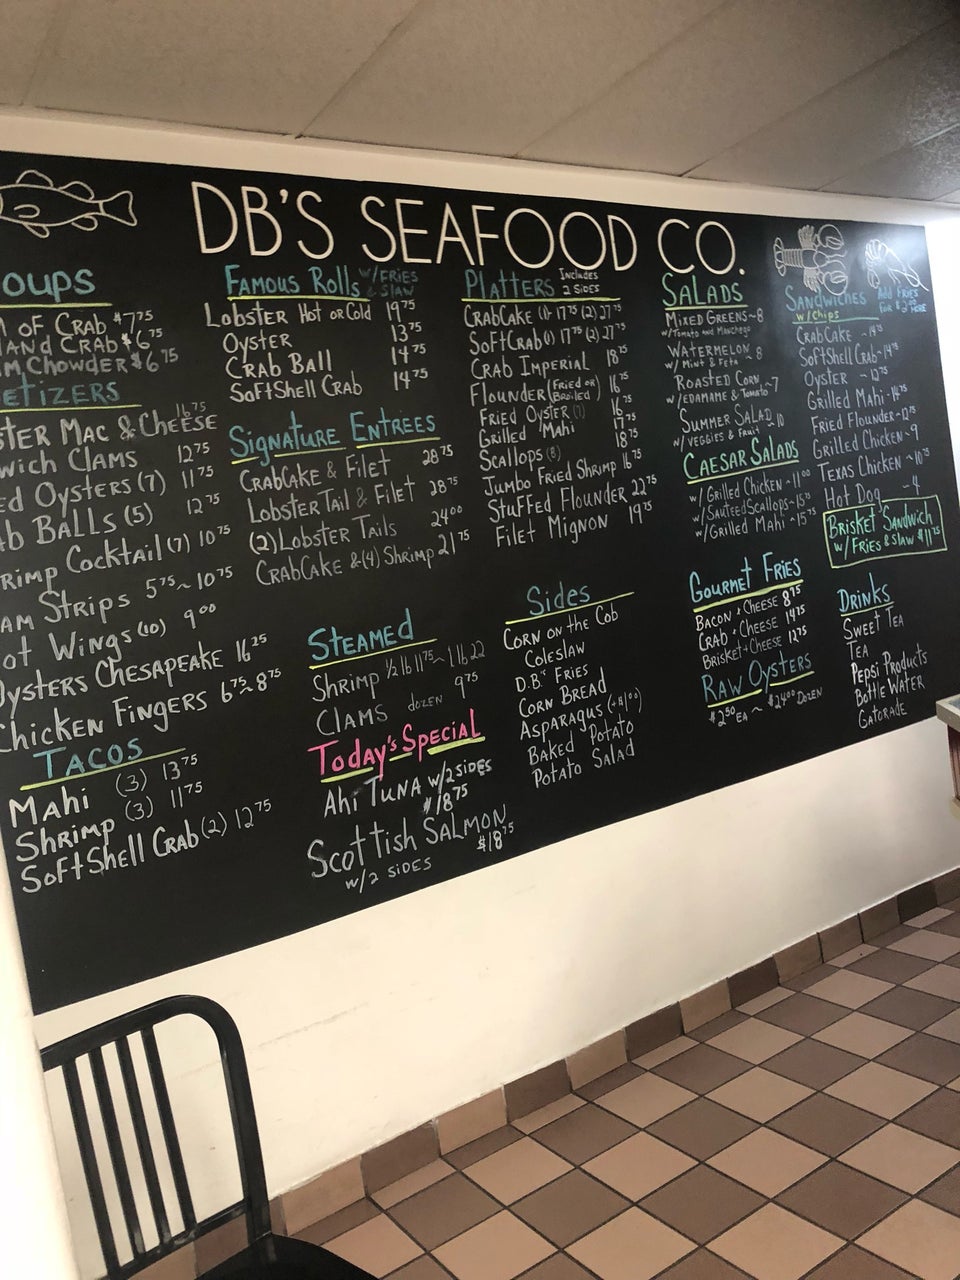 DB'S SEAFOOD CO.
OUPS
OF CRAB $7.75
AND CRAB $6.75
M CHOWDER $6.75
ETIZERS
STER MAC & CHEESE 16.75
WICH CLAMS 12.75
ED OYSTERS (7) 11.75
AB BALLS (5) 12.75
RIMP COCKTAIL (7) 10.75
AM STRIPS 5.75 ~ 10.75
OT WINGS (10) 9.00
OYSTERS CHESAPEAKE 16.25
CHICKEN FINGERS 6.75 ~ 8.75
TACOS
MAHI (3) 13.75
SHRIMP (3) 11.75
SOFTSHELL CRAB (2) 12.75
FAMOUS ROLLS W/FRIES & SLAW
LOBSTER HOT OR COLD 19.75
OYSTER 13.75
CRAB BALL 14.75
SOFTSHELL CRAB 14.75
SIGNATURE ENTREES
CRABCAKE & FILET 28.75
LOBSTER TAIL & FILET 28.75
(2) LOBSTER TAILS 24.00
CRABCAKE & (4) SHRIMP 21.75
STEAMED
SHRIMP 1/2 lb 11.75 ~ 1 lb 22
CLAMS DOZEN 9.75
TODAY'S SPECIAL
AHI TUNA W/2 SIDES
$18.75
SCOTTISH SALMON
W/2 SIDES $18.75
PLATTERS INCLUDES 2 SIDES
CRABCAKE (1) 17.75 (2) 27.75
SOFTCRAB (1) 17.75 (2) 27.75
CRAB IMPERIAL 18.75
FLOUNDER (FRIED OR BROILED) 16.75
FRIED OYSTER (7) 16.75
GRILLED MAHI 17.75
SCALLOPS 18.75
JUMBO FRIED SHRIMP 16.75
STUFFED FLOUNDER 22.75
FILET MIGNON 19.75
SIDES
CORN ON THE COB
COLESLAW
D.B.'S FRIES
CORN BREAD
ASPARAGUS (+$1.00)
BAKED POTATO
POTATO SALAD
SALADS
MIXED GREENS ~ 8
W/TOMATO AND MANCHEGO
WATERMELON 8
W/ MINT & FETA
ROASTED CORN ~ 7
W/EDAMAME & TOMATO
SUMMER SALAD 10
W/ VEGGIES & FRUIT
CAESAR SALADS
W/ GRILLED CHICKEN ~ 11.00
W/SAUTEED SCALLOPS ~ 15.75
W/GRILLED MAHI ~ 15.75
GOURMET FRIES
BACON + CHEESE 8.75
CRAB + CHEESE 14.75
BRISKET + CHEESE 12.75
RAW OYSTERS
$2.50 EA ~ $24.00 DOZEN
SANDWICHES ADD FRIES
W/ CHIPS
CRABCAKE ~ 14.75
SOFTSHELL CRAB ~ 14.75
OYSTER ~ 12.75
GRILLED MAHI ~ 14.75
FRIED FLOUNDER ~ 12.75
GRILLED CHICKEN ~ 9
TEXAS CHICKEN ~ 10.75
HOT DOG ~ 4
BRISKET SANDWICH
W/ FRIES & SLAW $11.75
DRINKS
SWEET TEA
TEA
PEPSI PRODUCTS
BOTTLE WATER
GATORADE